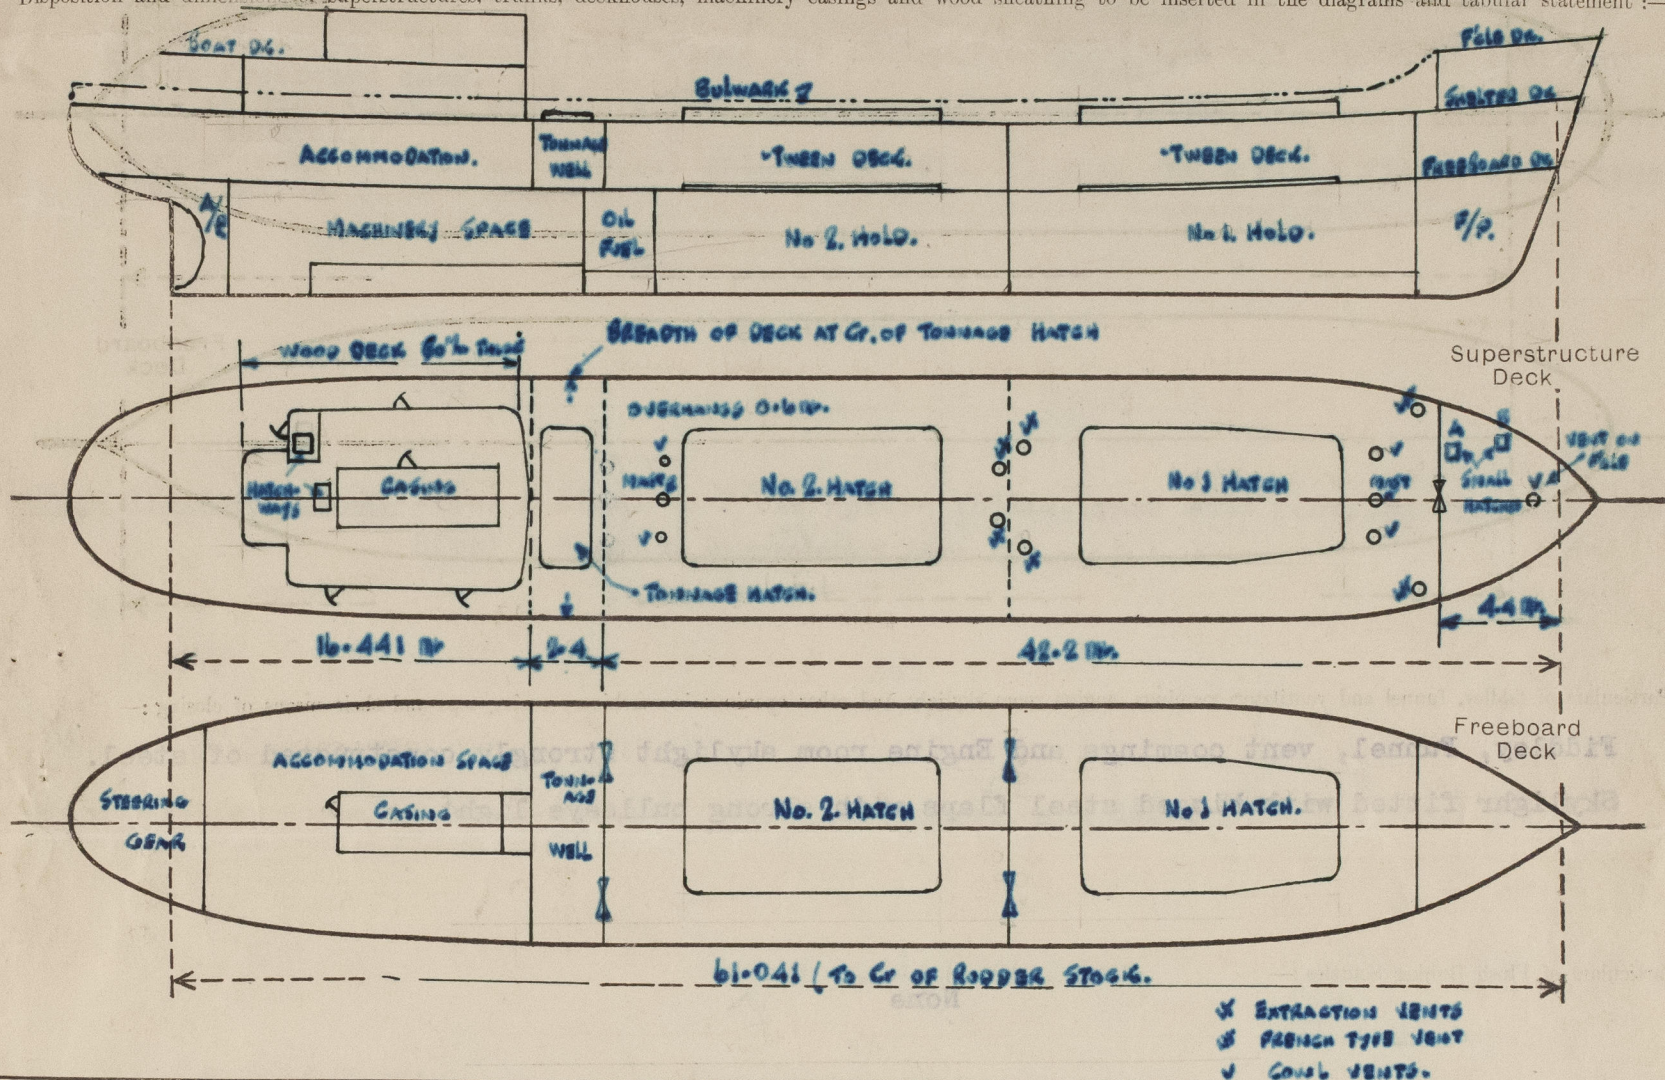 Disposition and dimensions of superstructures, trunks, deckhouses, machinery casings and wood sheathing to be inserted in the diagrams and tabular statement :—
BOAT DK.
F'CLE DK.
BULWARK
SHELTER DK
ACCOMMODATION.
TONNAGE
WELL
'TWEEN DECK.
'TWEEN DECK.
FREEBOARD DK
A/P
MACHINERY SPACE
OIL
FUEL
No 2. HOLD.
No 1. HOLD.
F/P.
BREADTH OF DECK AT Cr. OF TONNAGE HATCH
WOOD DECK
Superstructure
Deck
A
B
VENT ON
F'CLE
MASTS
CASING
HATCH-
WAYS
No. 2. HATCH
No 1 HATCH
MAST
SMALL
HATCHES
TONNAGE HATCH.
16.441 M
2.4
42.2 M.
4.4 M.
Freeboard
Deck
ACCOMMODATION SPACE
STEERING
GEAR
CASING
TONN-
AGE
WELL
No. 2. HATCH
No 1 HATCH.
61.041 ( TO Cr OF RUDDER STOCK.
EXTRACTION VENTS
FRENCH TYPE VENT
COWL VENTS.